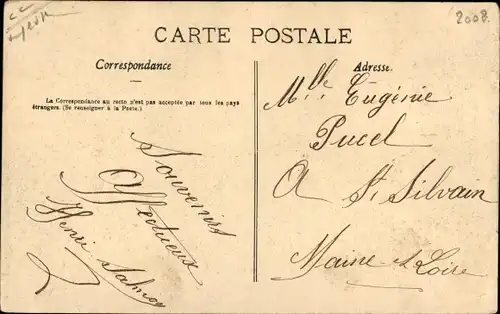 2008.
CARTE POSTALE
Correspondance
La Correspondance au recto n'est pas acceptée par tous les pays
étrangers. (Se renseigner à la Poste.)
Souvenirs
Affectueux
Henri
Adresse.
Mlle Eugénie
Pucel
A St Silvain
Maine et Loire